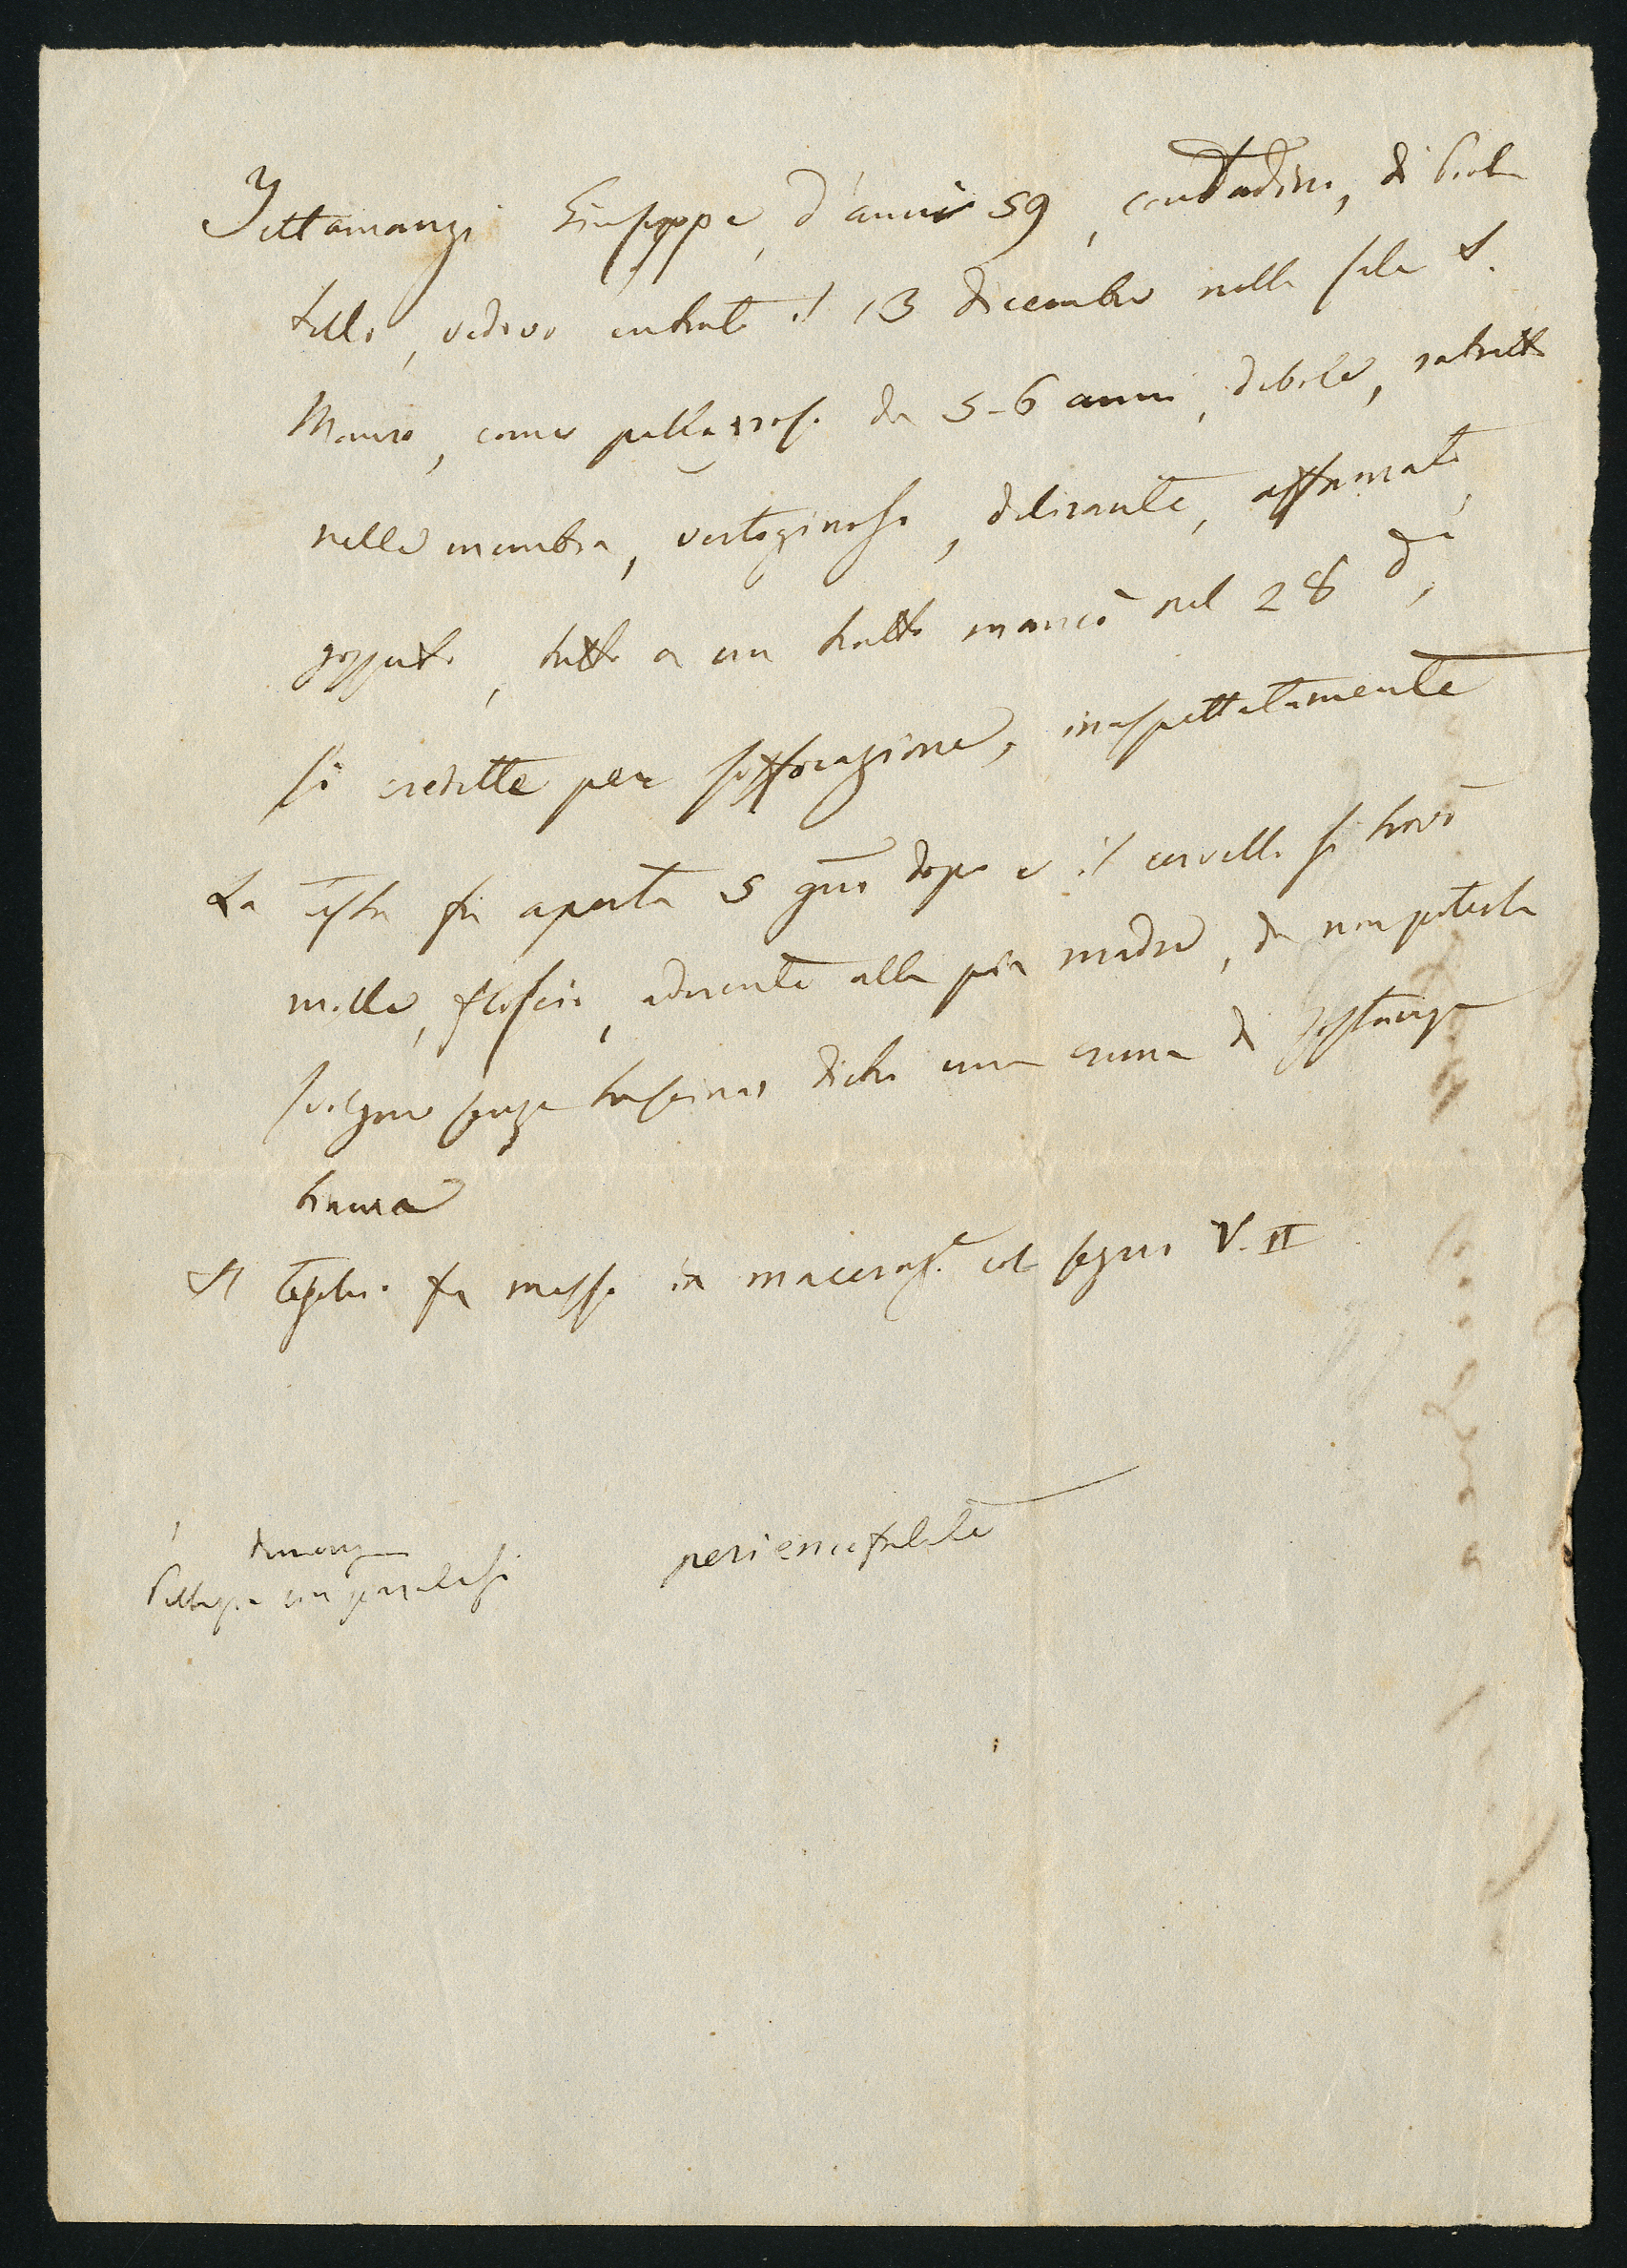 Settamanzi Giuseppe, d'anni 59, contadino, di Piol
tello, vedovo entrato il 13 dicembre nella sala S.
Mauro, come pellagroso da 5-6 anni, debole, rattratto
nelle membra, vertiginoso, delirante, affamato,
gozzuto, tutto a un tratto mancò nel 28 dì,
si credette per soffocazione, inaspettatamente
La testa fu aperta 5 gni dopo e il cervello si trovò
molle, floscio, aderente alla pia madre, da non poterla
svolgere senza trascinar dietro una crema di sostanza
Il teschio fu messo in maceraz.e col segno V. II
demenza
Pellagra con paralisi periencefalite